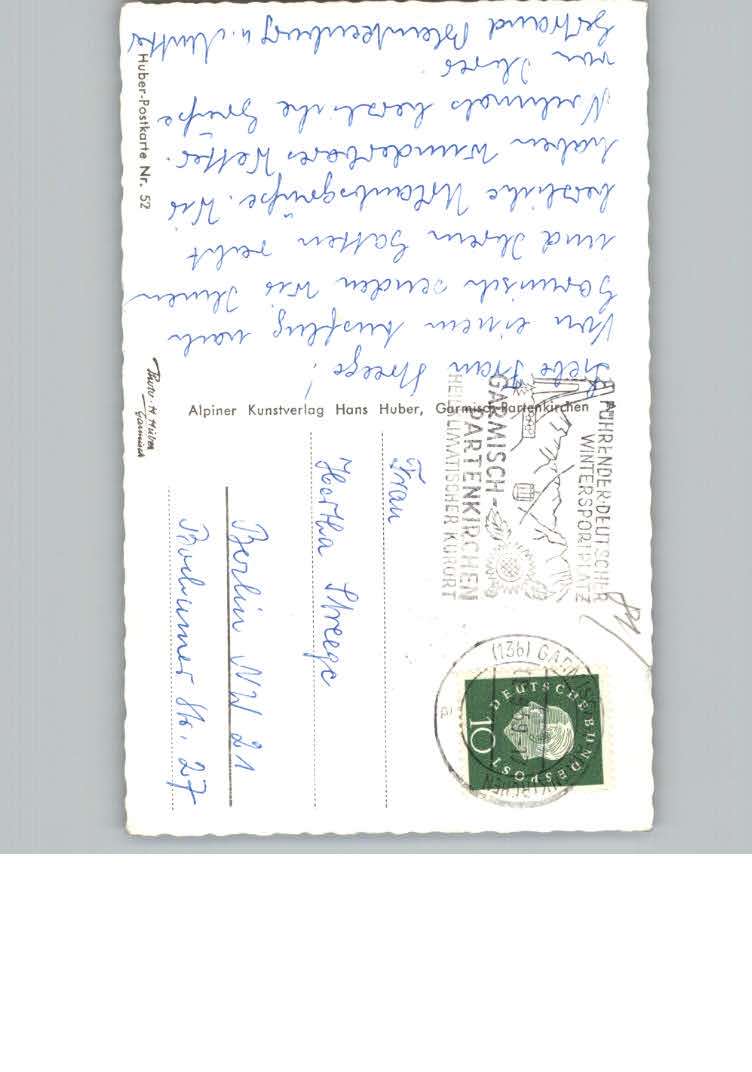 Liebe Frau Streege!
Von einem Ausflug nach
Garmisch senden wir Ihnen
und Ihrem Gatten recht
herzliche Urlaubsgrüße. Wir
haben wunderbares Wetter.
Nochmals herzliche Grüße
von Ihrer
Gertraud Blankenburg u. Mutter
Huber-Postkarte Nr. 52
Photo: H. Huber
Garmisch
Alpiner Kunstverlag Hans Huber, Garmisch-Partenkirchen
FÜHRENDER DEUTSCHER
WINTERSPORTPLATZ
GARMISCH-
PARTENKIRCHEN
HEILKLIMATISCHER KURORT
(13b) GARMISCH-PARTENKIRCHEN
DEUTSCHE BUNDESPOST
10
Frau
Hertha Streege
Berlin NW 21
Bochumer Str. 27